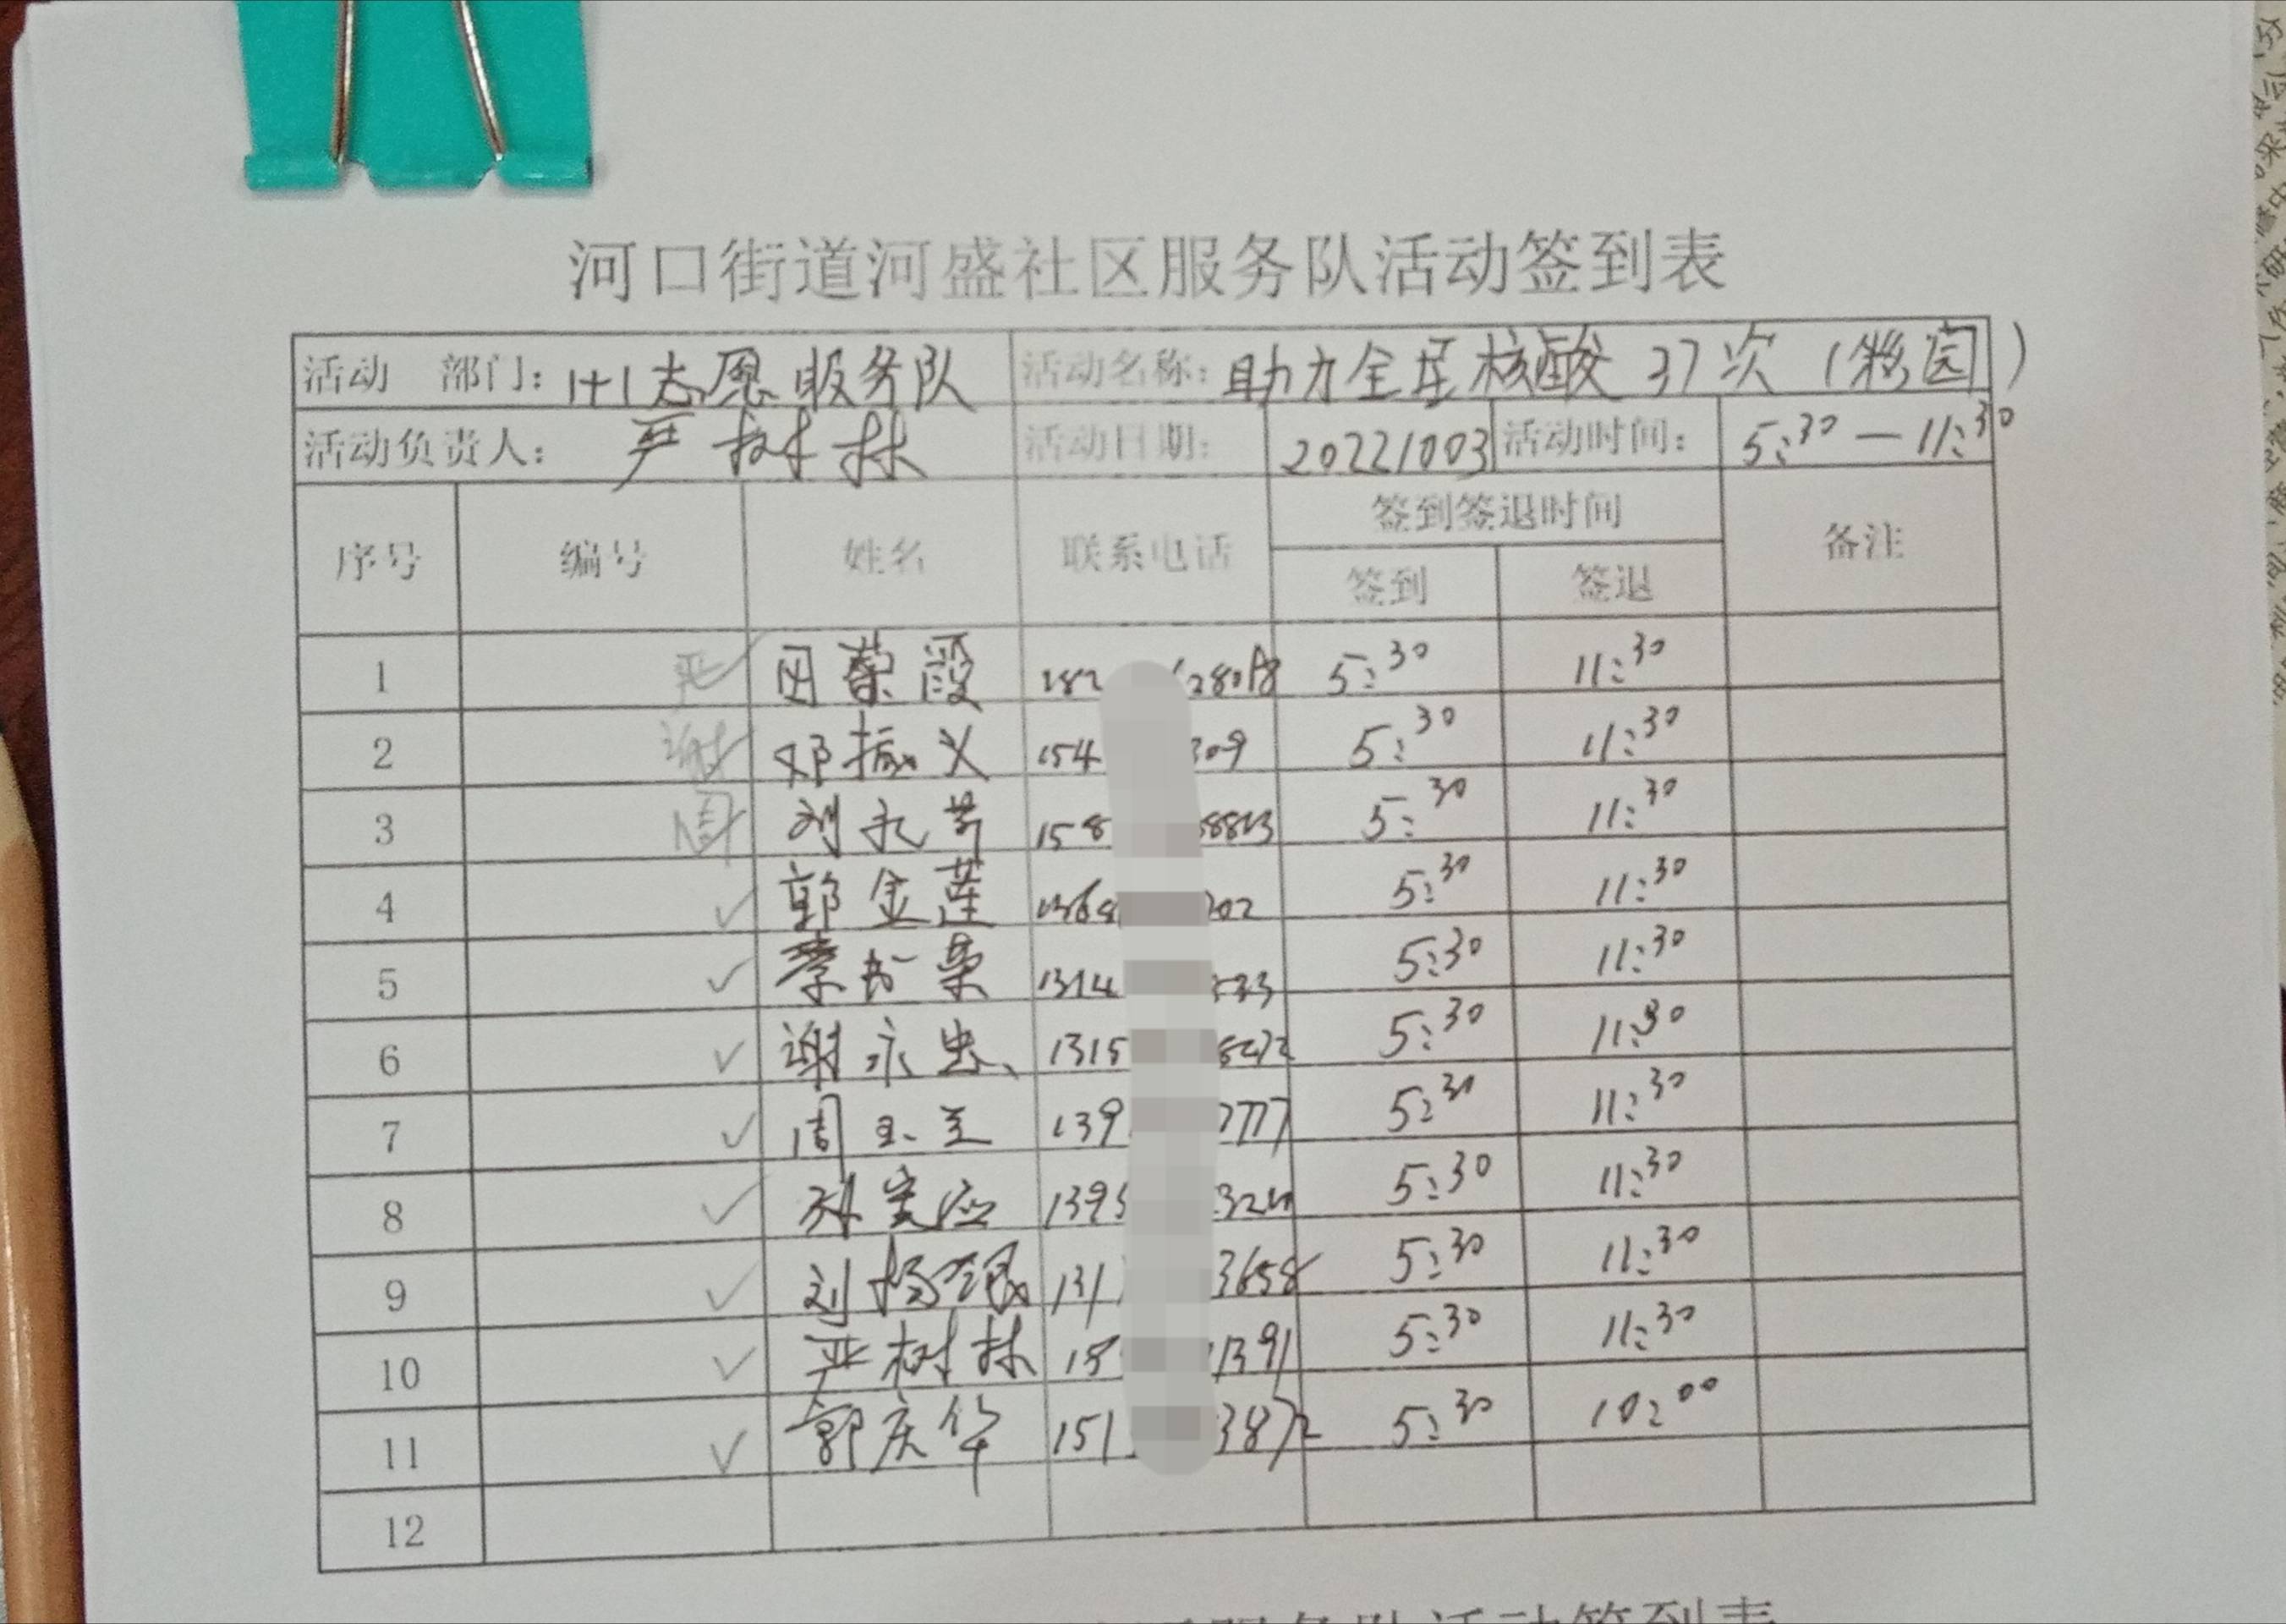 河口街道河盛社区服务队活动签到表
活动 部门: 1+1志愿服务队 活动名称: 助力全员核酸37次(彩园)
活动负责人: 严树林 活动日期: 20221003 活动时间: 5:30-11:30
序号 编号 姓名 联系电话 签到签退时间 备注
签到 签退
1 严 田荣霞 182 5:30 11:30
2 谢 邓振义 154 309 5:30 11:30
3 周 刘永芳 158 5:30 11:30
4 ✓ 郭金莲 1368 202 5:30 11:30
5 ✓ 1314 533 5:30 11:30
6 ✓ 谢永忠 1315 8272 5:30 11:30
7 ✓ 周玉兰 139 7777 5:30 11:30
8 ✓ 1395 5:30 11:30
9 ✓ 刘 131 3658 5:30 11:30
10 ✓ 严树林 15 1391 5:30 11:30
11 ✓ 郭庆华 151 3872 5:30 10:00
12
服务队活动签到表